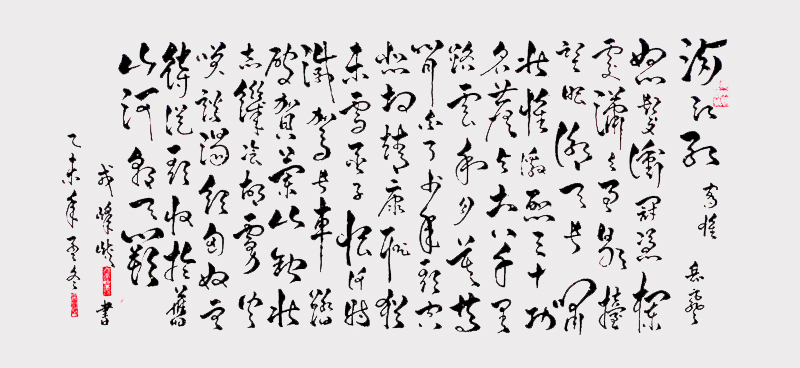 滿江紅 寫懷 岳飛
怒髮衝冠憑欄
處瀟瀟雨歇擡
望眼仰天長嘯
壯懷激烈三十功
名塵與土八千里
路雲和月莫等
閒白了少年頭空
悲切靖康恥猶
未雪臣子恨何時
滅駕長車踏
破賀蘭山缺壯
志饑餐胡虜肉
笑談渴飲匈奴血
待從頭收拾舊
山河朝天闕
書
乙未年孟冬